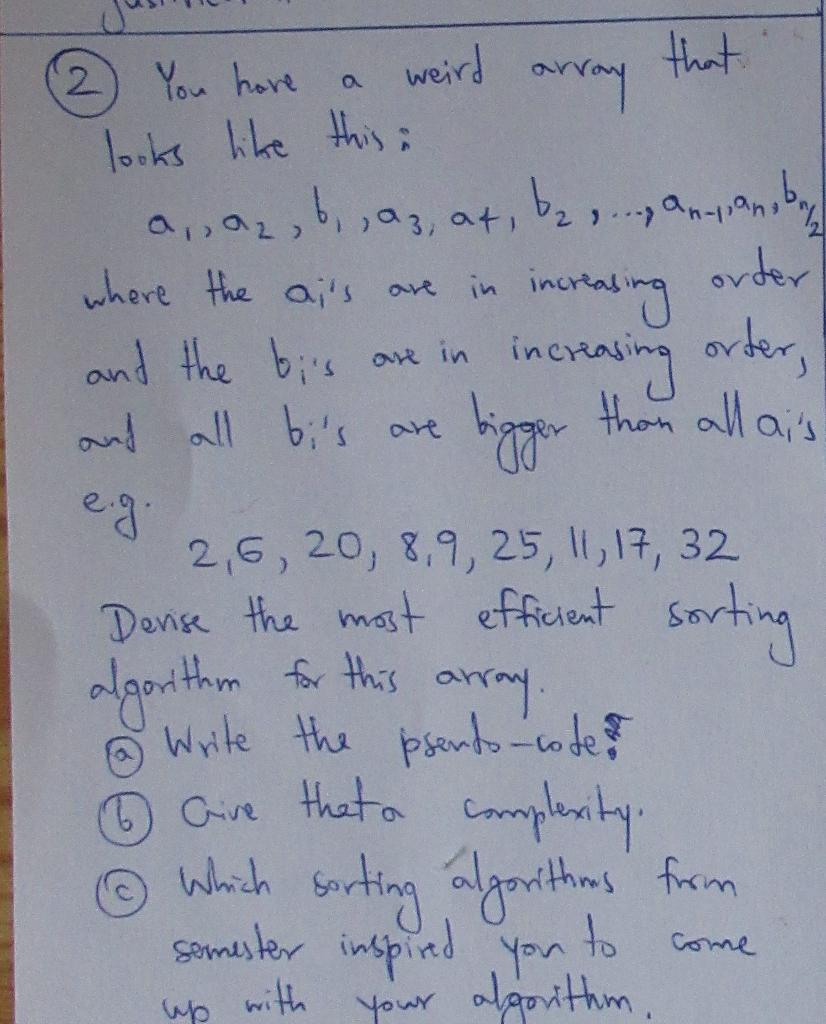 ② You have a weird array that
looks like this:
a₁, a₂, b₁, a₃, a₄, b₂, ..., aₙ₋₁, aₙ, bₙ/₂
where the aᵢ's are in increasing order
and the bᵢ's are in increasing order,
and all bᵢ's are bigger than all aᵢ's
e.g.
2, 6, 20, 8, 9, 25, 11, 17, 32
Devise the most efficient sorting
algorithm for this array.
ⓐ Write the pseudo-code.
ⓑ Give theta complexity.
ⓒ Which sorting algorithms from
semester inspired you to come
up with your algorithm.